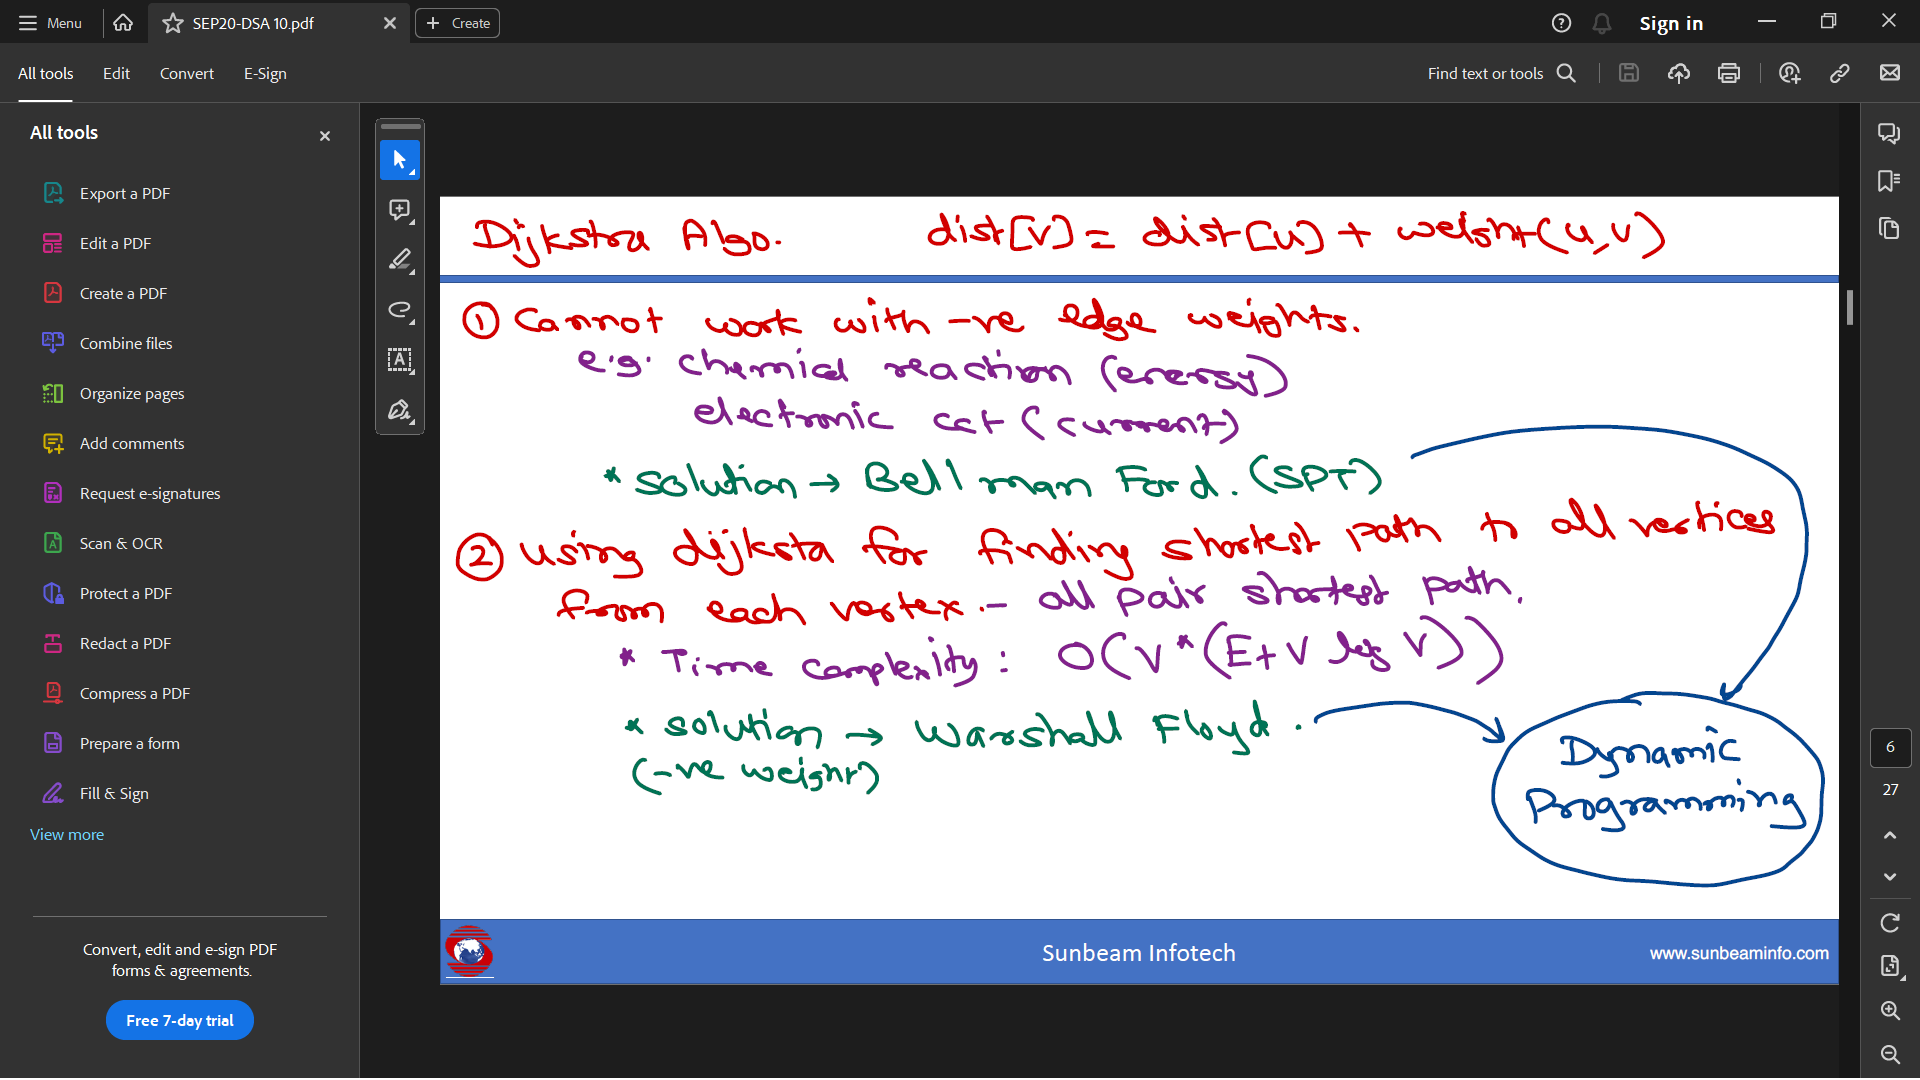 Menu
SEP20-DSA 10.pdf
Create
Sign in
All tools
Edit
Convert
E-Sign
Find text or tools
All tools
Export a PDF
Edit a PDF
Create a PDF
Combine files
Organize pages
Add comments
Request e-signatures
Scan & OCR
Protect a PDF
Redact a PDF
Compress a PDF
Prepare a form
Fill & Sign
View more
Convert, edit and e-sign PDF
forms & agreements.
Free 7-day trial
Dijkstra Algo. dist[v] = dist[u] + weight(u,v)
① Cannot work with -ve edge weights.
e.g. chemical reaction (energy)
electronic cct (current)
* solution → Bell man Ford. (SPT)
② using dijksta for finding shortest path to all vertices
from each vertex. - all pair shortest path.
* Time complexity: O(V*(E+V log V))
* solution → Warshall Floyd.
(-ve weight)
Dynamic
Programming
Sunbeam Infotech
www.sunbeaminfo.com
6
27